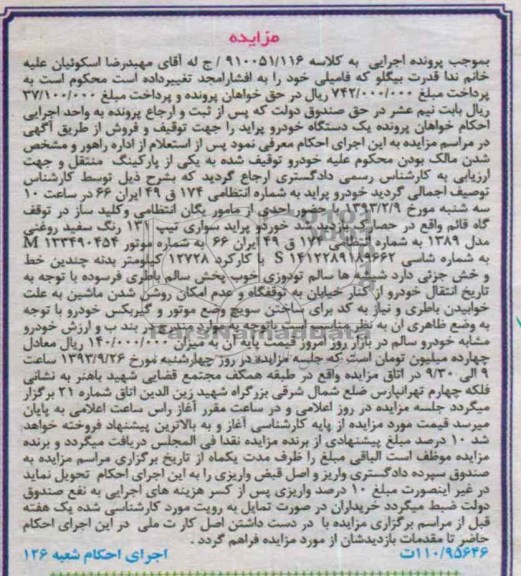 مزایده
بموجب پرونده اجرایی به کلاسه ۹۱۰۰۵۱/۱۱۶ / ج له آقای مهیدرضا اسکوئیان علیه
خانم ندا قدرت بیگلو که فامیلی خود را به افشارامجد تغییرداده است محکوم است به
پرداخت مبلغ ۷۴۲/۰۰۰/۰۰۰ ریال در حق خواهان پرونده و پرداخت مبلغ ۳۷/۱۰۰/۰۰۰
ریال بابت نیم عشر در حق صندوق دولت که پس از ثبت و ارجاع پرونده به واحد اجرایی
احکام خواهان پرونده یک دستگاه خودرو پراید را جهت توقیف و فروش از طریق آگهی
در مراسم مزایده به این اجرای احکام معرفی نمود پس از استعلام از اداره راهور و مشخص
شدن مالک بودن محکوم علیه خودرو توقیف شده به یکی از پارکینگ منتقل و جهت
ارزیابی به کارشناس رسمی دادگستری ارجاع گردید که بشرح ذیل توسط کارشناس
توصیف اجمالی گردید خودرو پراید به شماره انتظامی ۱۷۴ ق ۴۹ ایران ۶۶ در ساعت ۱۰
سه شنبه مورخ ۱۳۹۳/۲/۹ با حضور احدی از مامور یگان انتظامی وکلید ساز در توقف
گاه قائم واقع در حصارک بازدید شد خوردو پراید سواری تیپ ۱۳۱ رنگ سفید روغنی
مدل ۱۳۸۹ به شماره انتظامی ۱۷۴ ق ۴۹ ایران ۶۶ به شماره موتور ۱۳۳۴۹۰۴۵۴ M
به شماره شاسی S ۱۴۱۲۲۸۹۱۸۹۶۶۲ با کارکرد ۱۲۷۲۸ کیلومتر بدنه چندین خط
و خش جزئی دارد شیشه ها سالم تودوزی خوب پخش سالم باطری فرسوده با توجه به
تاریخ انتقال خودرو از کنار خیابان به توقفگاه و عدم امکان روشن شدن ماشین به علت
خوابیدن باطری و نیاز به کد برای ساختن سویچ وضع موتور و گیربکس خودرو با توجه
به وضع ظاهری ان به نظر مناسب است باتوجه به موارد مندرج در بند ب و ارزش خودرو
مشابه خودرو سالم در بازار روز امروز قیمت پایه آن به میزان ۱۴۰/۰۰۰/۰۰۰ ریال معادل
چهارده میلیون تومان است که جلسه مزایده در روز چهارشنبه مورخ ۱۳۹۳/۹/۲۶ ساعت
۹ الی ۹/۳۰ در اتاق مزایده واقع در طبقه همکف مجتمع قضایی شهید باهنر به نشانی
فلکه چهارم تهرانپارس ضلع شمال شرقی بزرگراه شهید زین الدین اتاق شماره ۲۱ برگزار
میگردد جلسه مزایده در روز اعلامی و در ساعت مقرر آغاز راس ساعت اعلامی به پایان
میرسد قیمت مورد مزایده از پایه کارشناسی آغاز و به بالاترین پیشنهاد فروخته خواهد
شد ۱۰ درصد مبلغ پیشنهادی از برنده مزایده نقدا فی المجلس دریافت میگردد و برنده
مزایده موظف است الباقی مبلغ را ظرف مدت یکماه از تاریخ برگزاری مراسم مزایده به
صندوق سپرده دادگستری واریز و اصل قبض واریزی را به این اجرای احکام تحویل نماید
در غیر اینصورت مبلغ ۱۰ درصد واریزی پس از کسر هزینه های اجرایی به نفع صندوق
دولت ضبط میگردد خریداران در صورت تمایل به رویت مورد کارشناسی شده یک هفته
قبل از مراسم برگزاری مزایده با در دست داشتن اصل کارت ملی در این اجرای احکام
حاضر تا مقدمات بازدیدشان از مورد مزایده فراهم گردد .
۱۱۰/۹۵۶۴۶ت اجرای احکام شعبه ۱۲۶